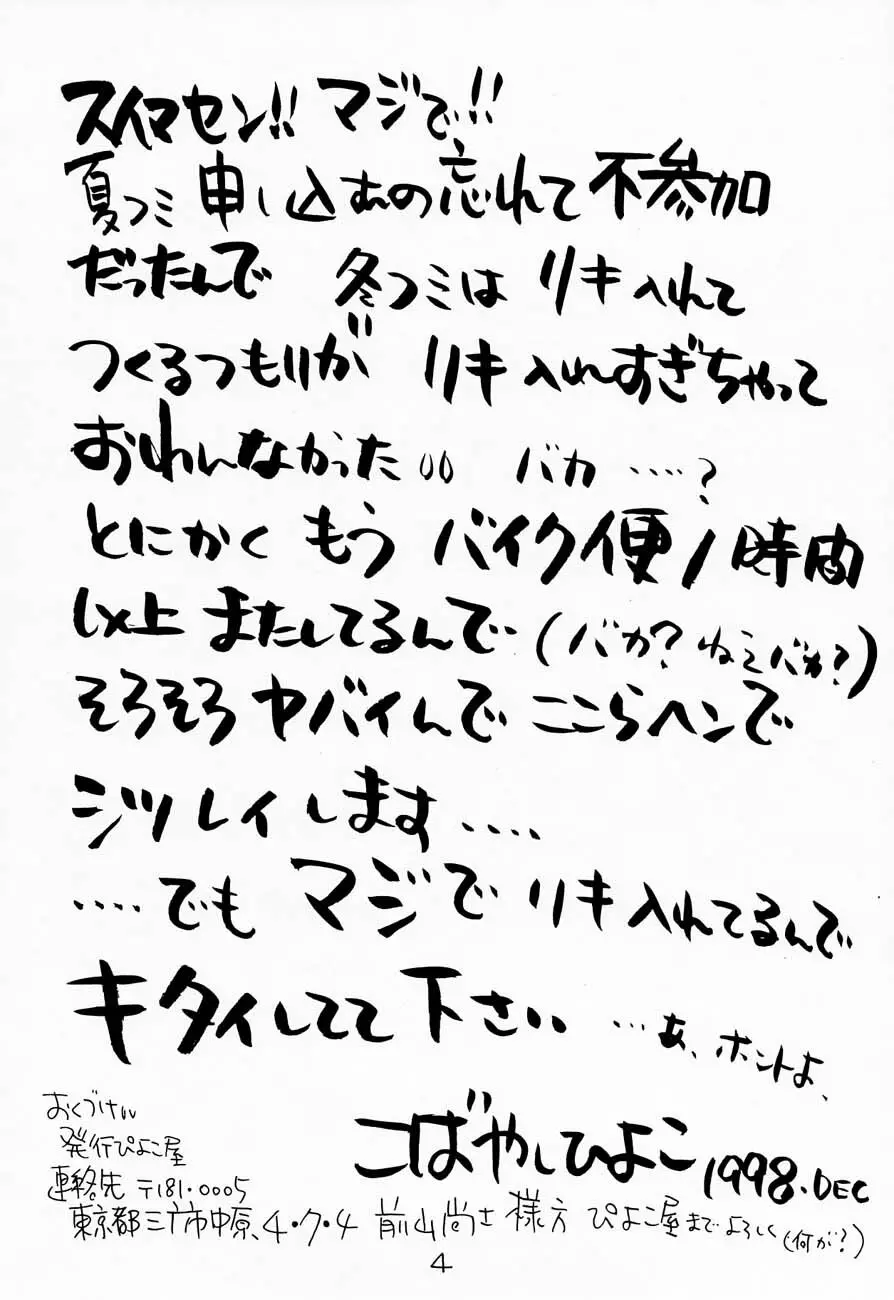 スイマセン!! マジで!!
夏コミ 申し込むの忘れて 不参加
だったんで 冬コミは リキ入れて
つくるつもりが リキ入れすぎちゃって
おわんなかった バカ ‥‥?
とにかく もう バイク便 1時間
以上 またしてるんで (バカ? ねえバカ?)
そろそろ ヤバイんで ここらヘンで
シツレイします ‥‥
‥‥でも マジで リキ入れてるんで
キタイしてて 下さい …あ、ホントよ、
こばやしひよこ 1998.DEC
おくづけ
発行ぴよこ屋
連絡先 〒181.0005
東京都三广市中原、4・7・4 前山尚士 様方 ぴよこ屋まで よろしく (何が?)
4